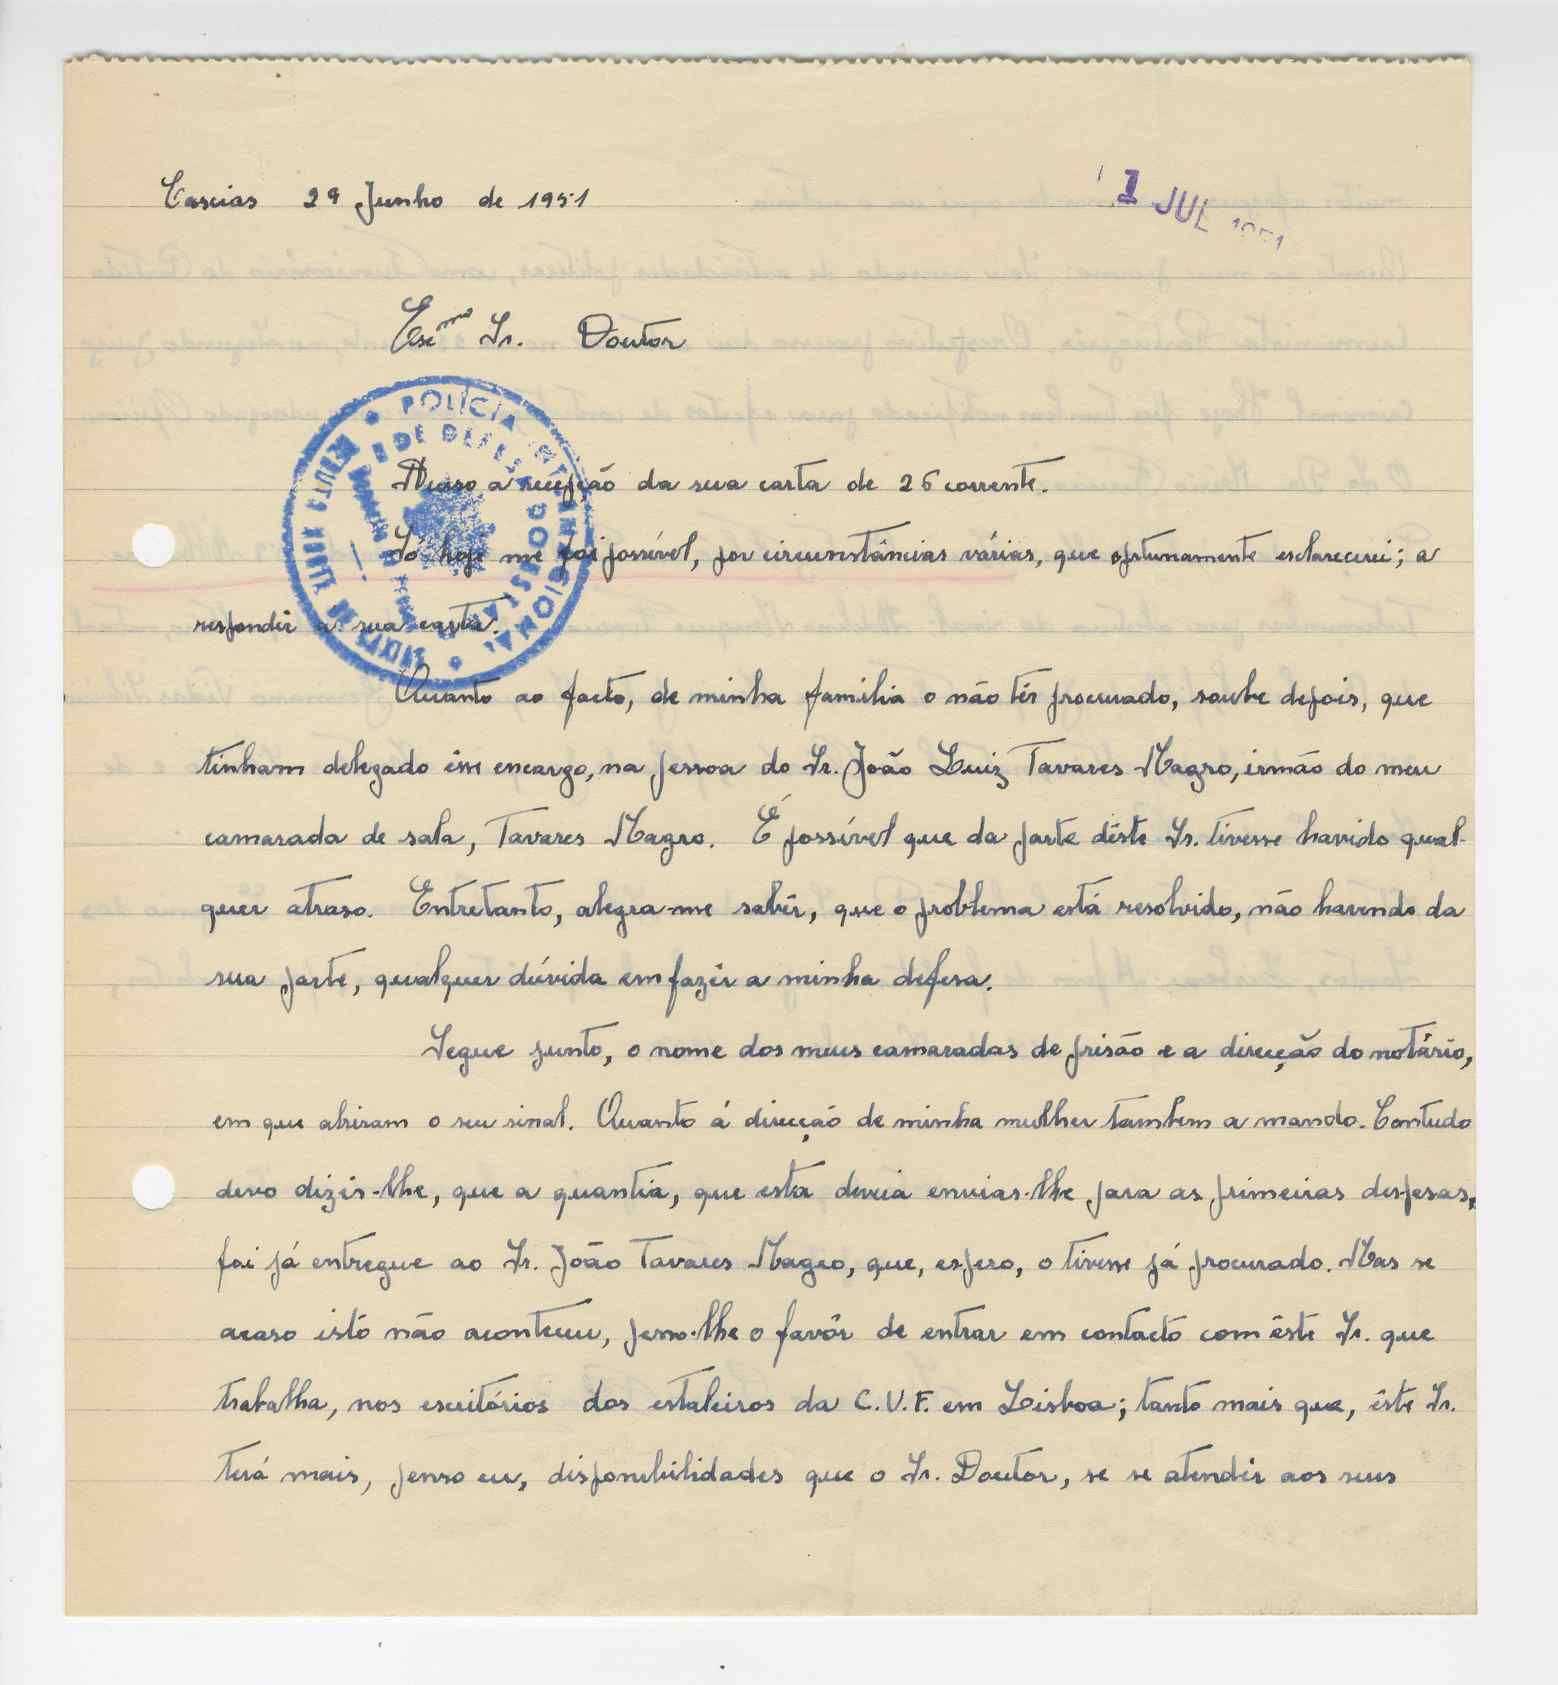 Caxias 29 Junho de 1951
1 JUL 1951
Exmo Sr. Doutor
POLÍCIA INTERNACIONAL
E DE DEFESA DO ESTADO
Acuso a recepção da sua carta de 26 corrente.
Só hoje me foi possível, por circunstâncias várias, que oportunamente esclarecerei; a
respondêr a sua carta.
Quanto ao facto, de minha familia o não têr procurado, soube depois, que
tinham delegado êsse encargo, na pessoa do Sr. João Luiz Tavares Magro, irmão do meu
camarada de sala, Tavares Magro. É possível que da parte dêste Sr. tivesse havido qual-
quer atraso. Entretanto, alegra-me sabêr, que o problema está resolvido, não havendo da
sua parte, qualquer dúvida em fazêr a minha defesa.
Segue junto, o nome dos meus camaradas de prisão e a direcção do notário,
em que abriram o seu sinal. Quanto á direcção de minha mulher tambem a mando. Contudo
devo dizêr-lhe, que a quantia, que esta devia enviar-lhe para as primeiras despesas,
foi já entregue ao Sr. João Tavares Magro, que, espero, o tivesse já procurado. Mas se
acaso isto não aconteceu, peço-lhe o favôr de entrar em contacto com êste Sr. que
trabalha, nos escritórios dos estaleiros da C.U.F. em Lisboa; tanto mais que, êste Sr.
terá mais, penso eu, disponibilidades que o Sr. Doutor, se se atendêr aos seus